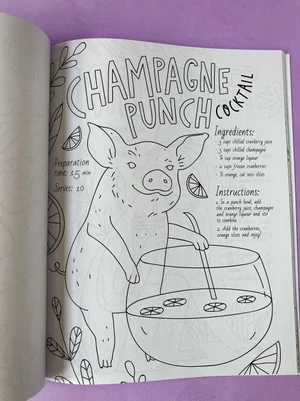 CHAMPAGNE
PUNCH
COCKTAIL
Preparation
time: 15 min
Serves: 10
Ingredients:
- 3 cups chilled cranberry juice
- 3 cups chilled champagne
cup orange liqueur
- 2 cups frozen cranberries
orange, cut into slices
Instructions:
1. In a punch bowl, add
the cranberry juice, champagne
and orange liqueur and stir
to combine.
2. Add the cranberries,
orange slices and enjoy!